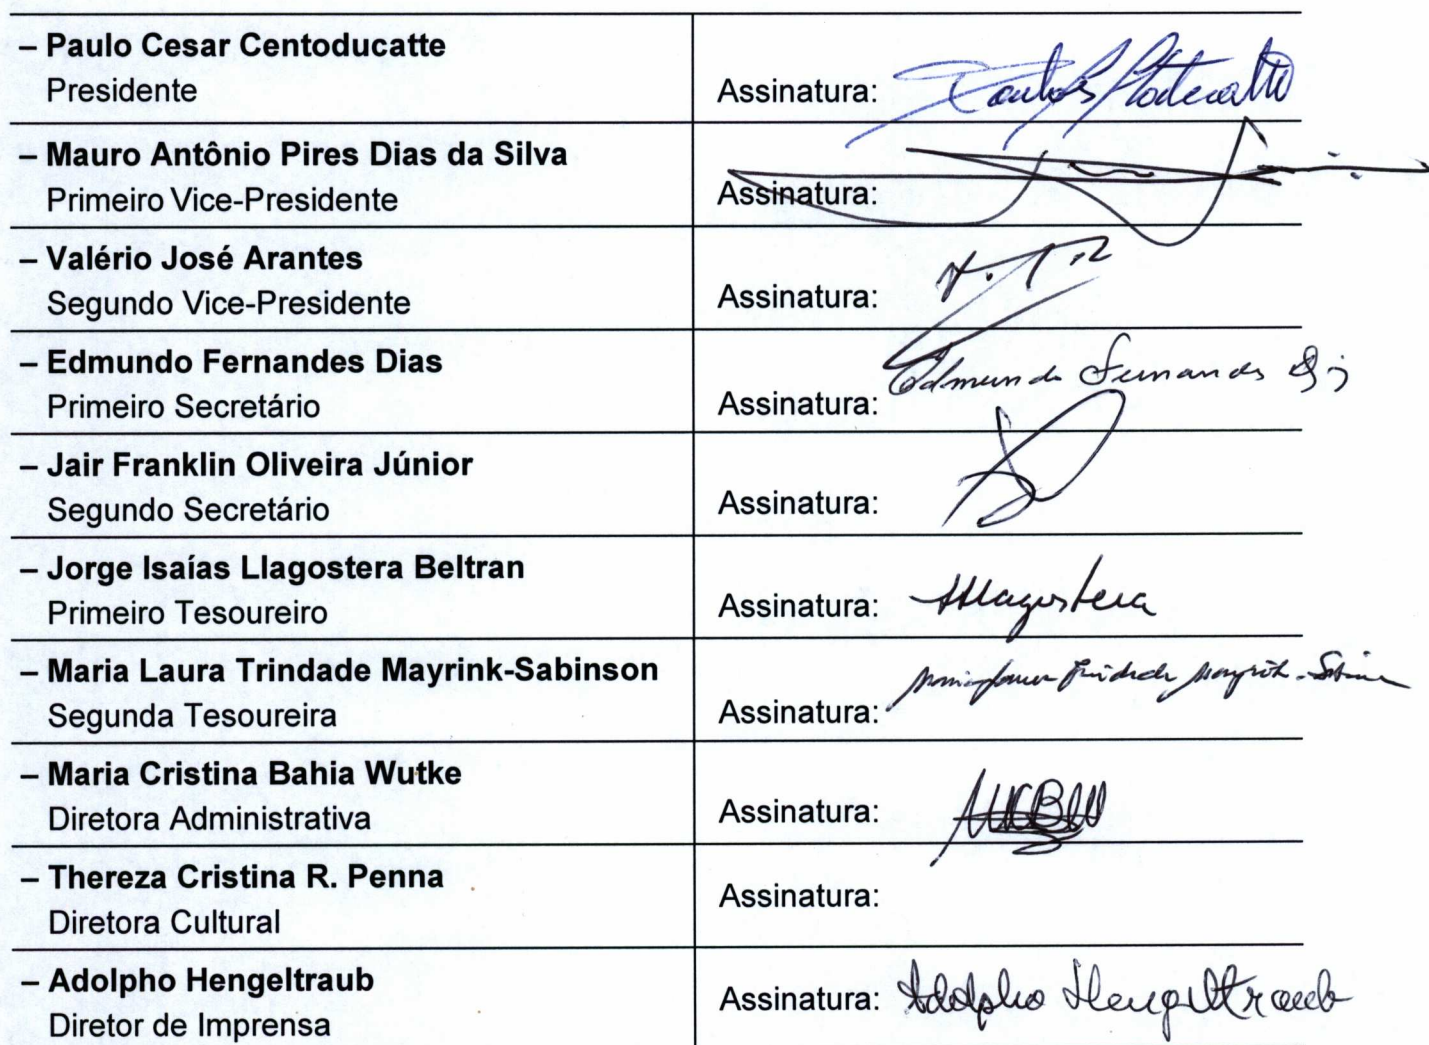 – Paulo Cesar Centoducatte
Presidente
Assinatura:
– Mauro Antônio Pires Dias da Silva
Primeiro Vice-Presidente
Assinatura:
– Valério José Arantes
Segundo Vice-Presidente
Assinatura:
– Edmundo Fernandes Dias
Primeiro Secretário
Assinatura: Edmundo Fernandes Dias
– Jair Franklin Oliveira Júnior
Segundo Secretário
Assinatura:
– Jorge Isaías Llagostera Beltran
Primeiro Tesoureiro
Assinatura: Llagostera
– Maria Laura Trindade Mayrink-Sabinson
Segunda Tesoureira
Assinatura: Maria Laura Trindade Mayrink-Sabinson
– Maria Cristina Bahia Wutke
Diretora Administrativa
Assinatura: MCBW
– Thereza Cristina R. Penna
Diretora Cultural
Assinatura:
– Adolpho Hengeltraub
Diretor de Imprensa
Assinatura: Adolpho Hengeltraub